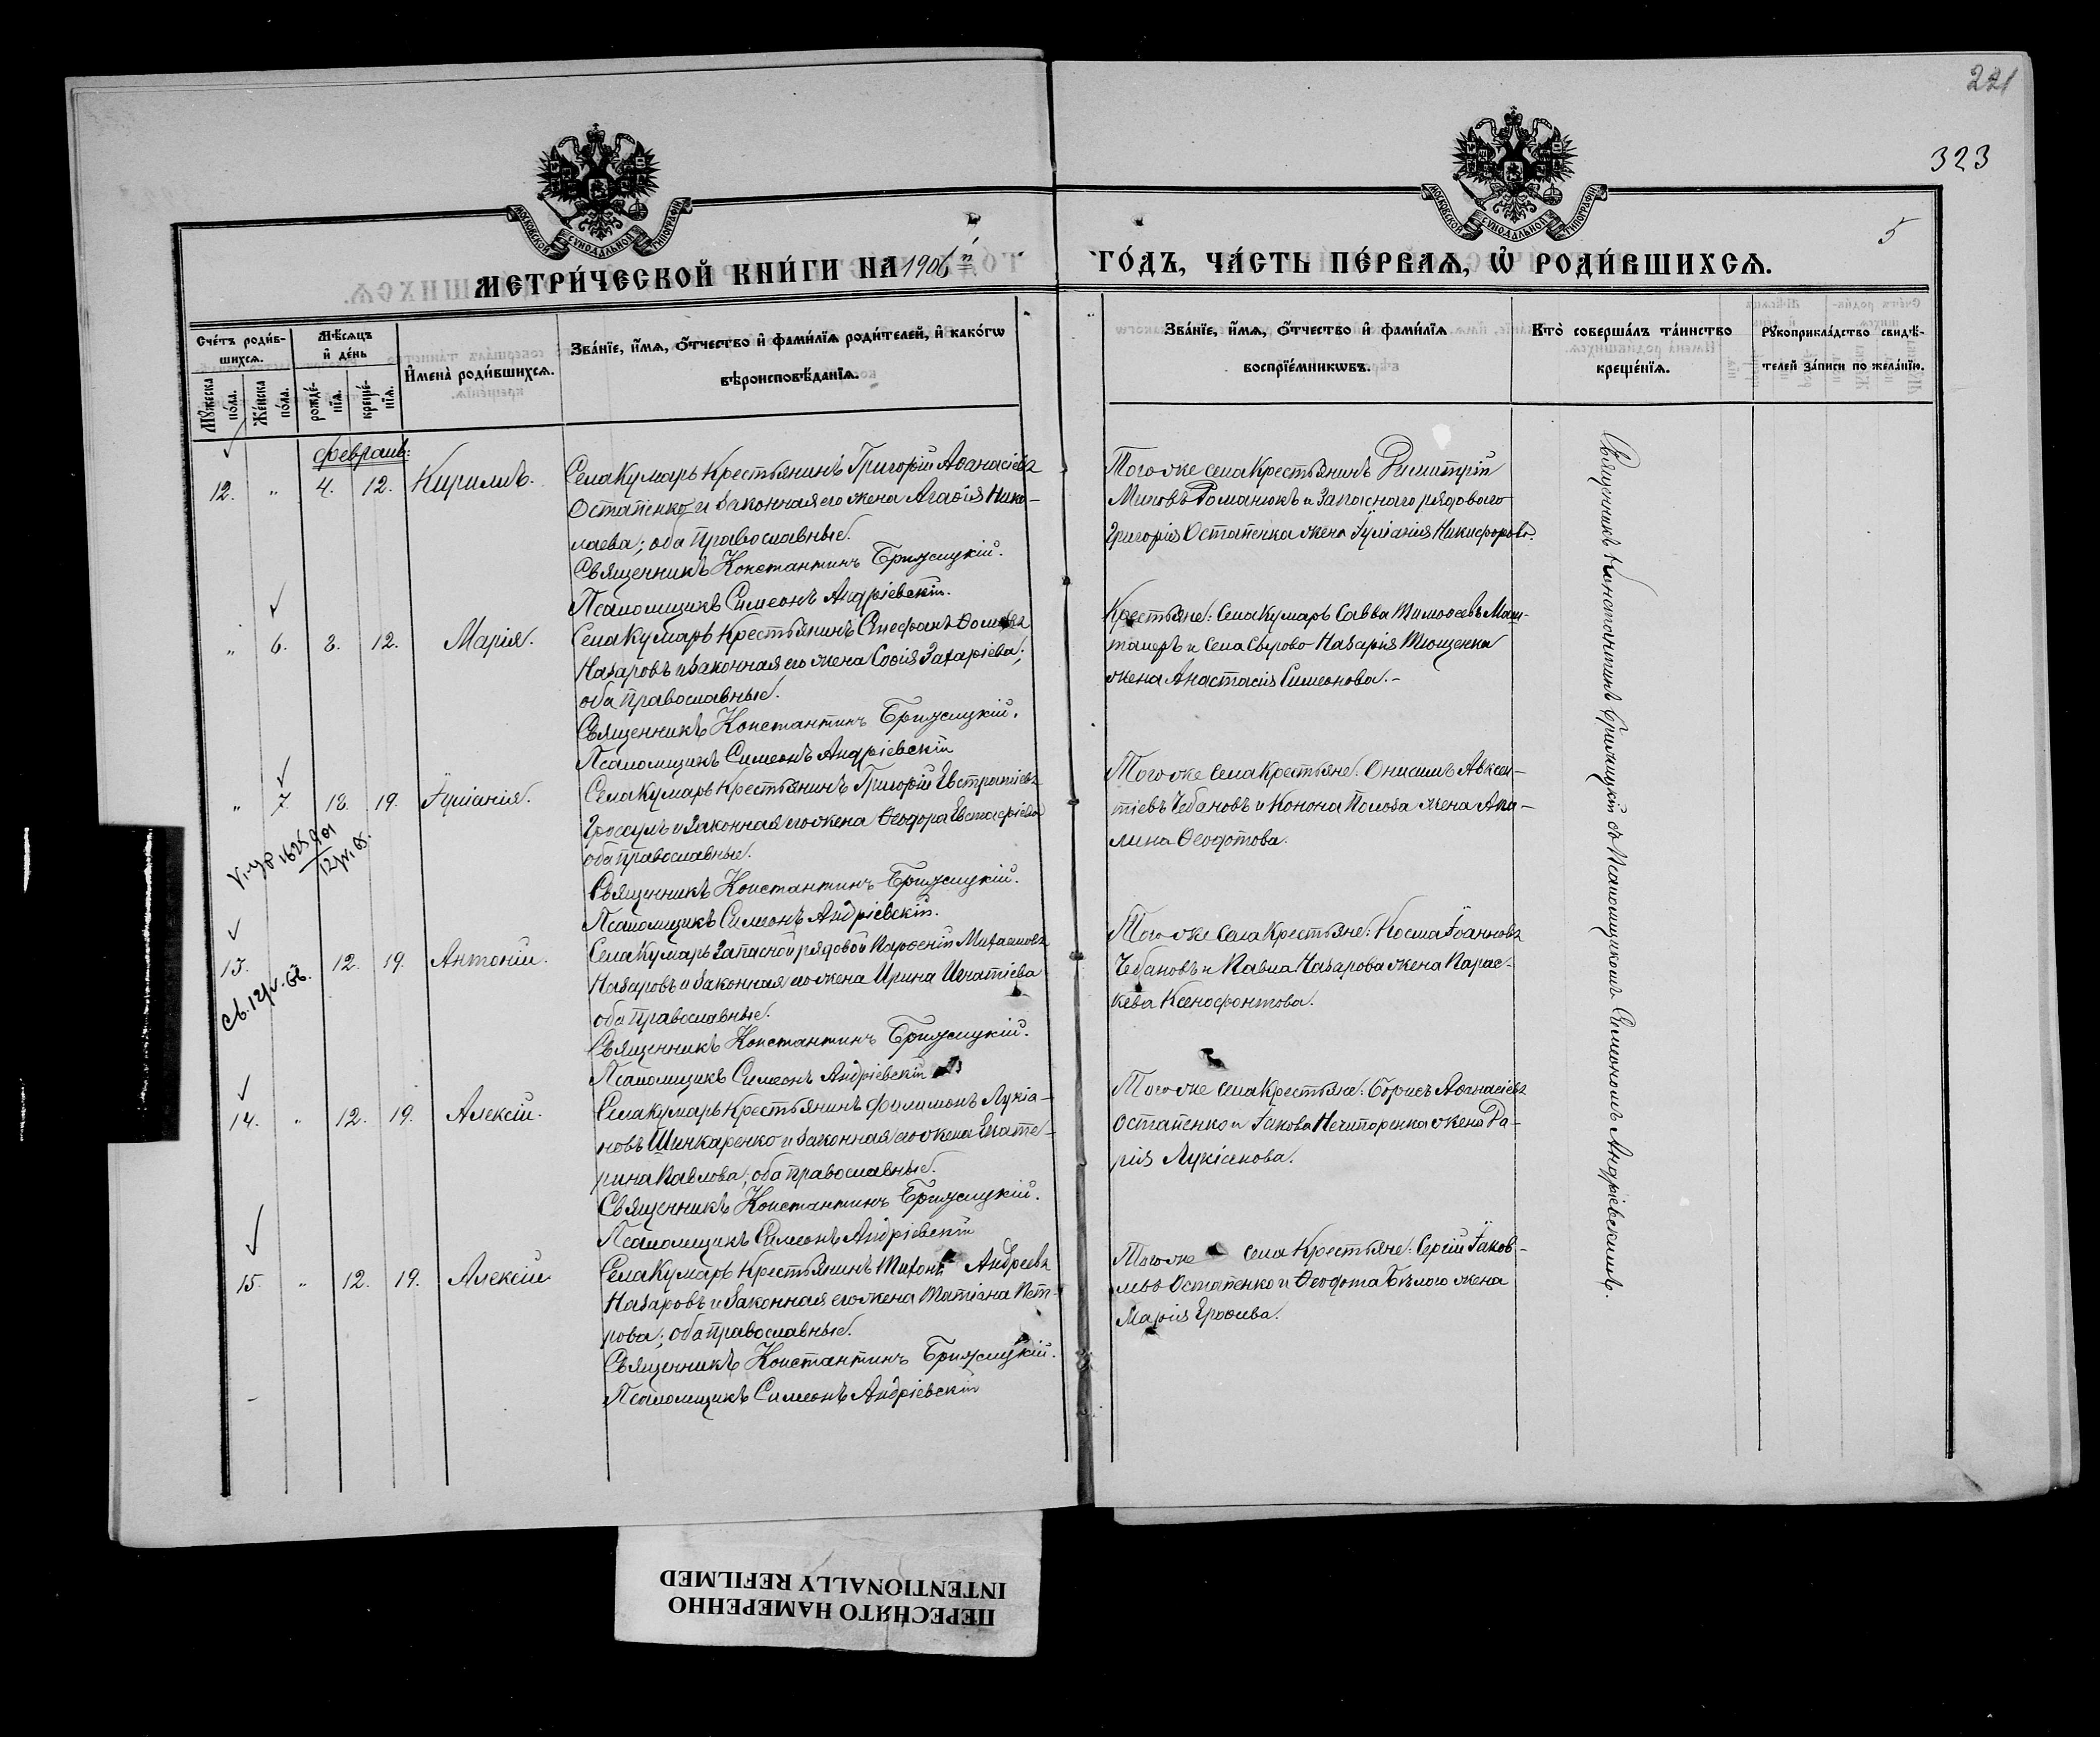 221
323
5
МОСКОВСКОЙ СѴНОДАЛЬНОЙ ТИПОГРАФІИ
МОСКОВСКОЙ СѴНОДАЛЬНОЙ ТИПОГРАФІИ
МЕТРИ́ЧЕСКОЙ КНИ́ГИ НА 1906й ГО́ДЪ, ЧА́СТЬ ПЕ́РВАѦ, Ѡ҆ РОДИ́ВШИХСѦ.
Сче́тъ роди́вшихсѧ.
Мꙋ́жеска по́ла.
Же́нска по́ла.
Мѣ́сѧцъ и҆ де́нь
рожде́нїѧ.
креще́нїѧ.
И҆мена̀ роди́вшихсѧ.
Зва́нїе, и҆́мѧ, ѻ҆́тчество и҆ фами́лїѧ роди́телей, и҆ како́гѡ
вѣроисповѣ́данїѧ.
Зва́нїе, и҆́мѧ, ѻ҆́тчество и҆ фами́лїѧ
воспрїе́мникѡвъ.
Кто̀ соверша́лъ та́инство
креще́нїѧ.
Рꙋкоприкла́дство свидѣ́-
телей за́писи по жела́нїю.
Февраль:
12. " 4. 12. Кириллъ.
Села Кумаръ Крестьянинъ Григорій Аѳанасіевъ
Остапенко и законная его жена Агаѳія Нико-
лаева; оба православные.
Священникъ Константинъ Брижицкій.
Псаломщикъ Симеонъ Андріевскій.
Того же села Крестьянинъ Димитрій
Романюкъ и запаснаго рядоваго
Григорія Остапенка жена Іуліанія Никифорова.
" 6. 8. 12. Марія.
Села Кумаръ Крестьянинъ Стефанъ
Назаровъ и законная его жена Софія Захаріева;
оба православные.
Священникъ Константинъ Брижицкій.
Псаломщикъ Симеонъ Андріевскій
Крестьяне: Села Кумаръ Савва Тимоѳеевъ Маш-
талеръ и Села Сырово Назарія Тющенка
жена Анастасія Симеонова.-
" 7. 12. 19. Іуліанія.
Села Кумаръ Крестьянинъ Григорій Евстратіевъ
Гроссулъ и законная его жена Ѳеодора Евстафіева
оба православные.
Священникъ Константинъ Брижицкій.
Псаломщикъ Симеонъ Андріевскій.
Того же села Крестьяне: Онисимъ Авксен-
тіевъ Чебановъ и Конона Полоза жена Аки-
лина Ѳеодотова.
13. 12. 19. Антоній.
Села Кумаръ запасной рядовой Парѳеній Михаиловъ
Назаровъ и законная его жена Ирина Игнатіева
оба православные.
Священникъ Константинъ Брижицкій.
Псаломщикъ Симеонъ Андріевскій
Того же села Крестьяне: Косма Іоанновъ
Чебановъ и Павла Назарова жена Парас-
кева Ксенофонтова.
14. " 12. 19. Алексій.
Села Кумаръ Крестьянинъ Филимонъ Лукіа-
новъ Шинкаренко и законная его жена Екате-
рина Павлова; оба православные.
Священникъ Константинъ Брижицкій.
Псаломщикъ Симеонъ Андріевскій
Того же села Крестьяне: Борисъ Аѳанасіевъ
Остапенко и Іакова Нечипоренка жена Да-
рія Лукіанова.
15. " 12. 19. Алексій
Села Кумаръ Крестьянинъ Тихонъ Андреевъ
Назаровъ и законная его жена Татіана Пет-
рова; оба православные.
Священникъ Константинъ Брижицкій.
Псаломщикъ Симеонъ Андріевскій
Того же села Крестьяне: Сергій Іаков-
левъ Остапенко и Ѳеодота Бѣлого жена
Марія Ероѳеева.
Священникъ Константинъ Брижицкій съ Псаломщикомъ Симеономъ Андріевскимъ.
ПЕРЕСНЯТО НАМЕРЕННО
INTENTIONALLY REFILMED